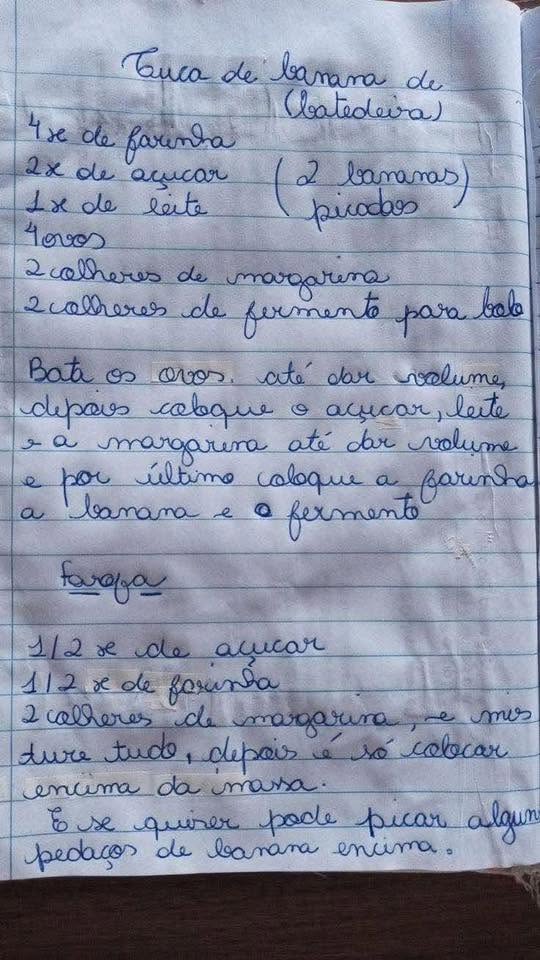 Cuca de banana de
(batedeira)
4 x de farinha
2x de açucar (2 bananas)
1 x de leite picados
4 ovos
2 colheres de margarina
2 colheres de fermento para bolo
Bata os ovos. até dar volume,
depois coloque o açucar, leite
e a margarina até dar volume
e por último coloque a farinha
a banana e o fermento
Farofa
1/2 x de açucar
1/2 x de farinha
2 colheres de margarina, e mis
ture tudo, depois é só colocar
encima da massa.
E se quiser pode picar algun
pedaços de banana encima.